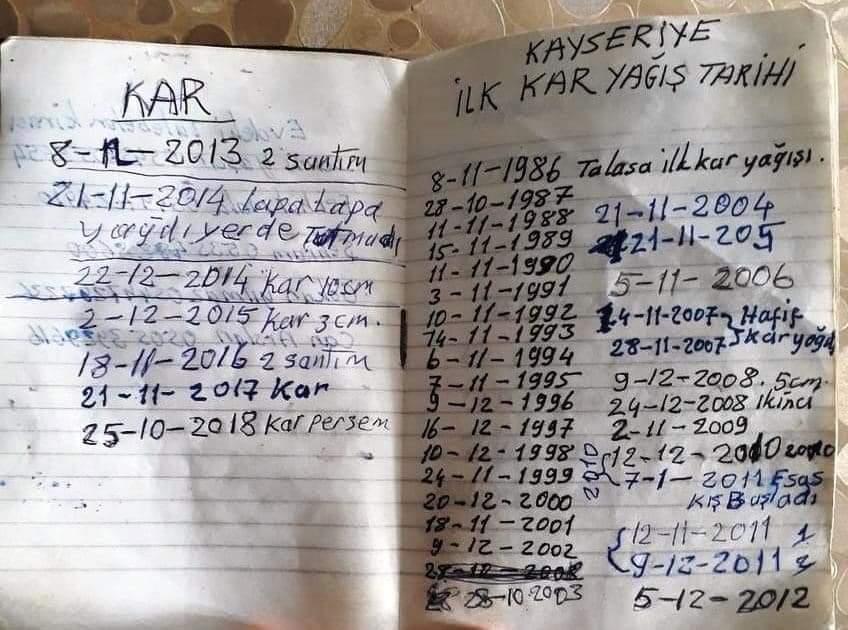 KAR
8-11-2013 2 santim
21-11-2014 Lapa Lapa
yağdı yerde Tutmadı
22-12-2014 Kar 10cm
2-12-2015 Kar 3cm.
18-11-2016 2 santim
21-11-2017 Kar
25-10-2018 Kar Perşem
KAYSERİYE
İLK KAR YAĞIŞ TARİHİ
8-11-1986 Talasa ilk kar yağışı.
28-10-1987
11-11-1988
15-11-1989
11-11-1990
3-11-1991
10-11-1992
14-11-1993
6-11-1994
7-11-1995
9-12-1996
16-12-1997
10-12-1998
24-11-1999
20-12-2000
18-11-2001
9-12-2002
28-10-2003
21-11-2004
21-11-205
5-11-2006
24-11-2007 Hafif
28-11-2007 kar yağdı
9-12-2008. 5cm.
24-12-2008 ikinci
2-11-2009
2010
12-12-2010 2010
7-1-2011 Esas
Kış Başladı
12-11-2011 1
9-12-2011 2
5-12-2012